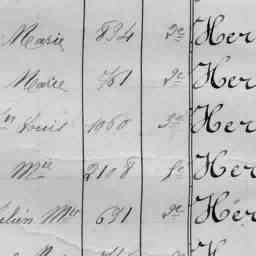 Marie 834 2e Her
Marie 761 2e Her
Louis 1060 2e Her
Mie 2108 2e Her
Mie 631 2e Her